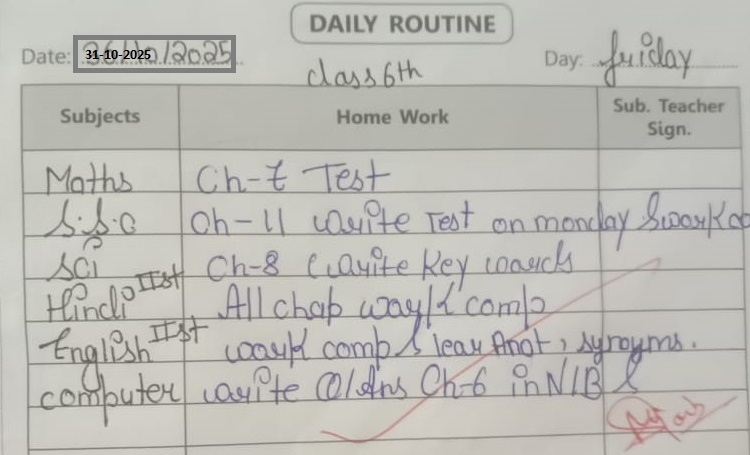 DAILY ROUTINE
Date: 31-10-2025 Day: friday
class 6th
Subjects Home Work Sub. Teacher Sign.
Maths Ch-7 Test
S.S.C Ch-11 warite Test on monday & woark comp
Sci Ch-8 warite Key woards
Hindi IIst All chap wayk comp
English IIst woark comp & lear Anot, synoyms.
computer warite Q/Ans Ch-6 in N/B &